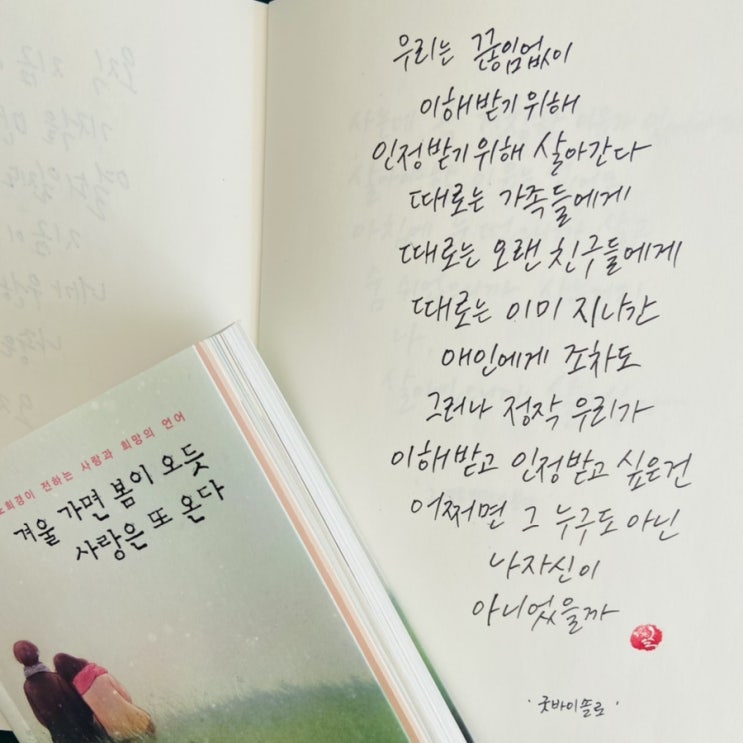 우리는 끊임없이
이해받기 위해
인정받기 위해 살아간다
때로는 가족들에게
때로는 오랜 친구들에게
때로는 이미 지나간
애인에게 조차도
그러나 정작 우리가
이해받고 인정받고 싶은건
어쩌면 그 누구도 아닌
나자신이
아니었을까
·굿바이솔로·
노희경이 전하는 사랑과 희망의 언어
겨울 가면 봄이 오듯
사랑은 또 온다